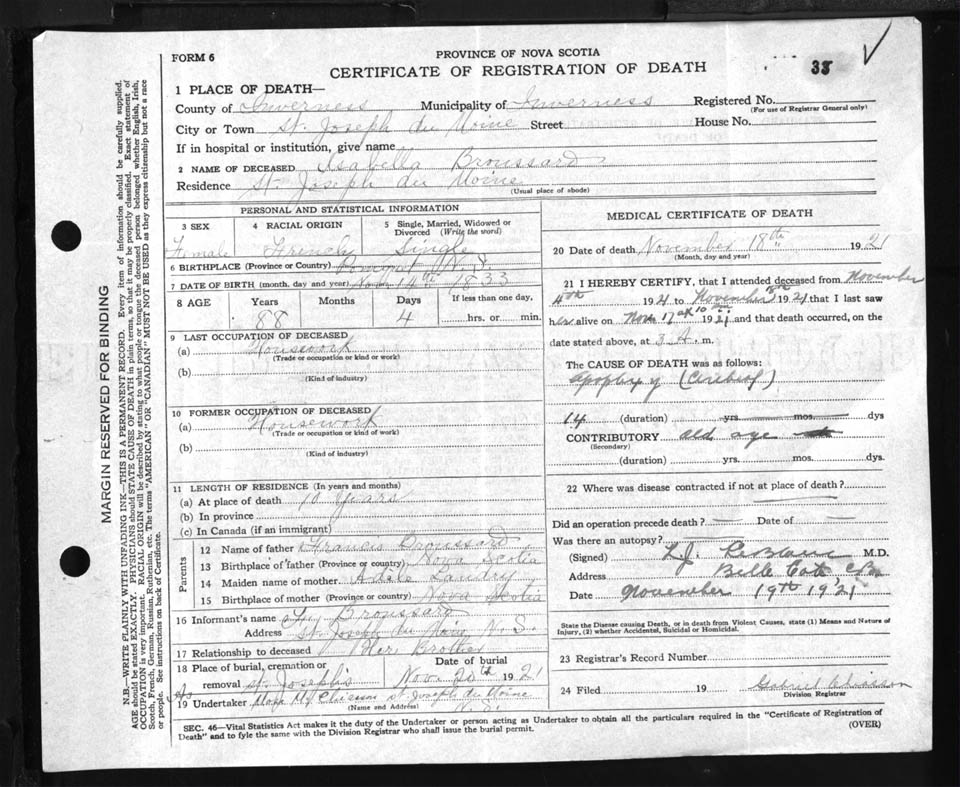 FORM 6
PROVINCE OF NOVA SCOTIA
CERTIFICATE OF REGISTRATION OF DEATH
35
1 PLACE OF DEATH—
County of Inverness Municipality of Inverness Registered No.
(For use of Registrar General only)
City or Town St. Joseph du Moine Street House No.
If in hospital or institution, give name
2 NAME OF DECEASED Isabella Broussard
Residence St. Joseph du Moine
(Usual place of abode)
PERSONAL AND STATISTICAL INFORMATION
3 SEX 4 RACIAL ORIGIN 5 Single, Married, Widowed or Divorced (Write the word)
Female French Single
6 BIRTHPLACE (Province or Country) Pomquet N.S.
7 DATE OF BIRTH (month, day and year) Nov 14th 1833
8 AGE Years Months Days If less than one day,
88 4 hrs. or min.
9 LAST OCCUPATION OF DECEASED
(a) Housework
(Trade or occupation or kind or work)
(b)
(Kind of industry)
10 FORMER OCCUPATION OF DECEASED
(a) Housework
(Trade or occupation or kind of work)
(b)
(Kind of industry)
11 LENGTH OF RESIDENCE (In years and months)
(a) At place of death 10 Years
(b) In province
(c) In Canada (if an immigrant)
Parents
12 Name of father Francis Broussard
13 Birthplace of father (Province or country) Nova Scotia
14 Maiden name of mother Adele Landry
15 Birthplace of mother (Province or country) Nova Scotia
16 Informant's name Broussard
Address St. Joseph du Moine, N. S.
17 Relationship to deceased Her Brother
18 Place of burial, cremation or removal St. Joseph's Date of burial Nov. 20th 1921
19 Undertaker St. Joseph du Moine
(Name and Address)
N. S.
MEDICAL CERTIFICATE OF DEATH
20 Date of death November 18th 1921
(Month, day and year)
21 I HEREBY CERTIFY, that I attended deceased from November
4th 1921 to November 18th 1921 that I last saw
her alive on Nov 17 at 10 1921 and that death occurred, on the
date stated above, at 3 A. m.
The CAUSE OF DEATH was as follows:
Apoplexy (Cerebral)
14 (duration) yrs. mos. dys
CONTRIBUTORY old age
(Secondary)
(duration) yrs. mos. dys.
22 Where was disease contracted if not at place of death?
Did an operation precede death? — Date of —
Was there an autopsy?
(Signed) L. J. LeBlanc M.D.
Address Belle Cote C.B.
Date November 19th 1921
State the Disease causing Death, or in death from Violent Causes, state (1) Means and Nature of
Injury, (2) whether Accidental, Suicidal or Homicidal.
23 Registrar's Record Number
24 Filed 19 Gabriel Chiasson
Division Registrar
SEC. 46—Vital Statistics Act makes it the duty of the Undertaker or person acting as Undertaker to obtain all the particulars required in the "Certificate of Registration of
Death" and to fyle the same with the Division Registrar who shall issue the burial permit.
(OVER)
MARGIN RESERVED FOR BINDING
N.B.—WRITE PLAINLY, WITH UNFADING INK—THIS IS A PERMANENT RECORD. Every item of information should be carefully supplied.
AGE should be stated EXACTLY. PHYSICIANS should STATE CAUSE OF DEATH in plain terms, so that it may be properly classified. Exact statement of
OCCUPATION is very important. RACIAL ORIGIN will be described by stating to what people or tongue the deceased person belonged whether English, Irish,
Scotch, French, German, Russian, Ruthenian, etc. The terms "AMERICAN" OR "CANADIAN" MUST NOT BE USED as they express citizenship but not a race
or people. See instructions on back of Certificate.